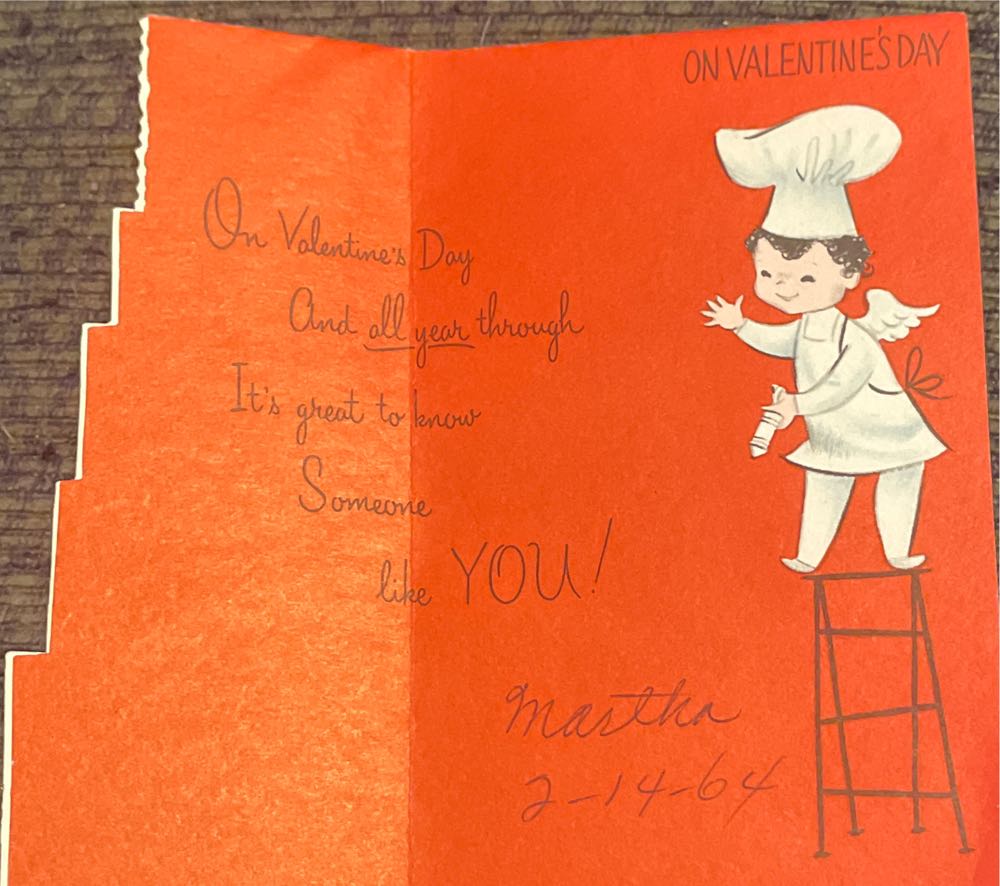 ON VALENTINE'S DAY
On Valentine's Day
And all year through
It's great to know
Someone
like YOU!
Martha
2-14-64